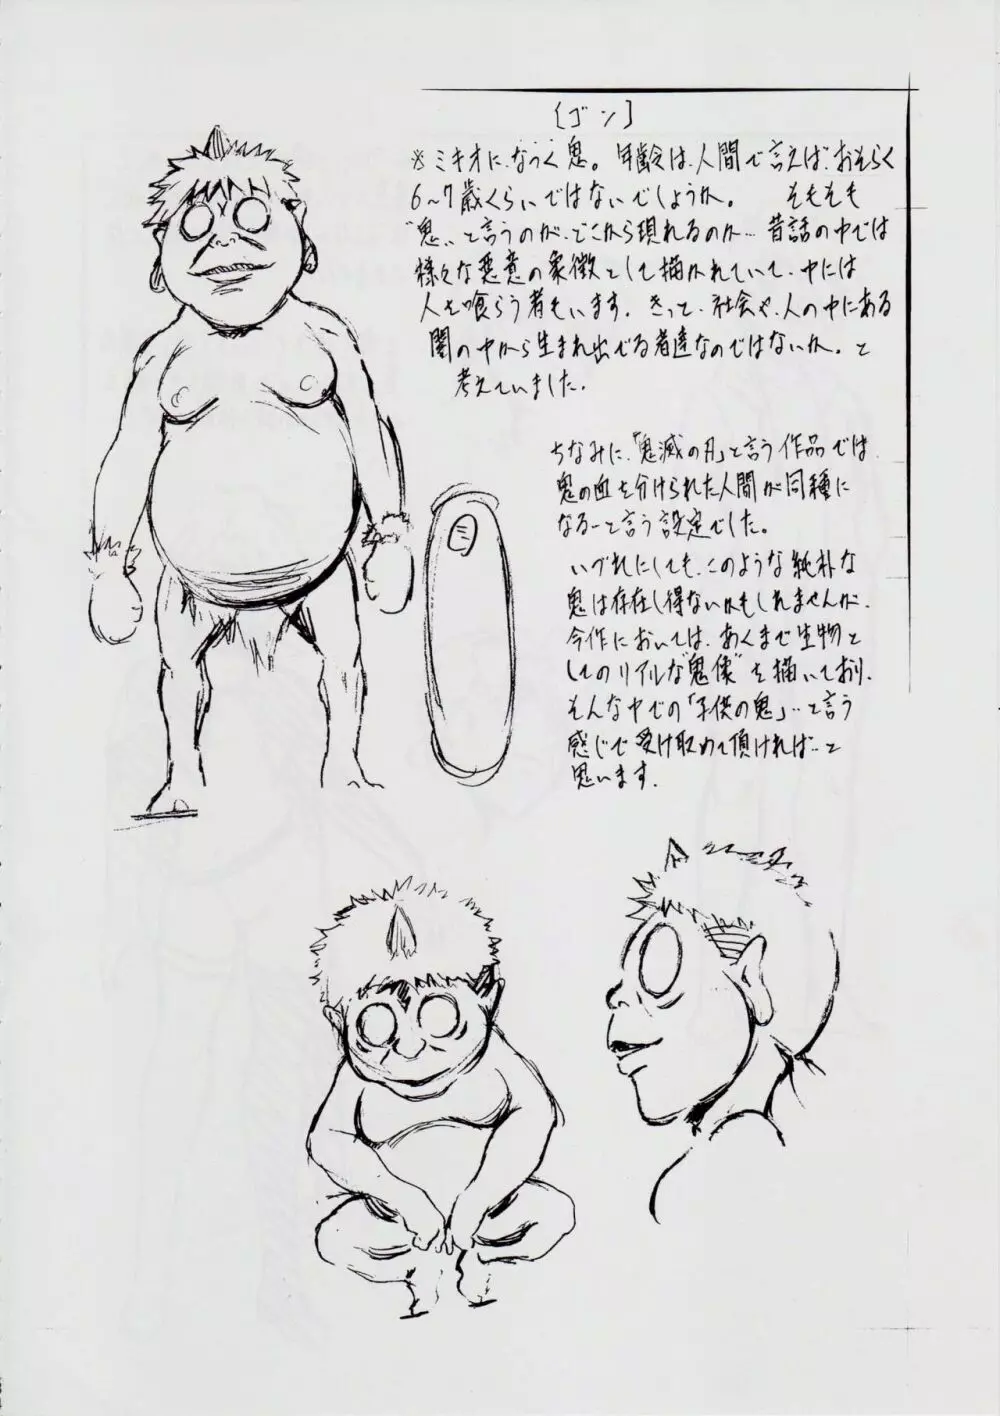 [ゴン]
※ミキオに、なつく鬼。年齢は、人間で言えば、おそらく
6〜7歳くらいではないでしょうか。 そもそも
"鬼"と言うのが、どこから現れるのか…昔話の中では
様々な悪意の象徴として描かれていて、中には
人を喰らう者もいます。きっと、社会や、人の中にある
闇の中から生まれ出でる者達なのではないか。と
考えていました。
ちなみに、「鬼滅の刃」と言う作品では、
鬼の血を分けられた人間が同種に
なる―と言う設定でした。
いづれにしても、このような純朴な
鬼は存在し得ないかもしれませんが、
今作においては、あくまで生物と
してのリアルな"鬼像"を描いており、
そんな中での「子供の鬼」…と言う
感じで受け取めて頂ければ…と
思います。